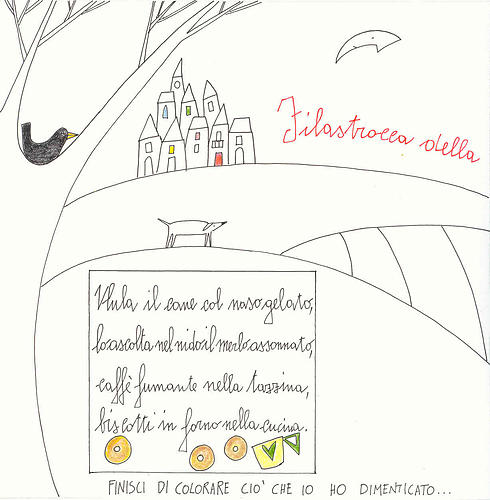 Filastrocca della
Ulula il cane col naso gelato,
lo ascolta nel nido il merlo assonnato,
caffè fumante nella tazzina,
biscotti in forno nella cucina.
FINISCI DI COLORARE CIO' CHE IO HO DIMENTICATO...